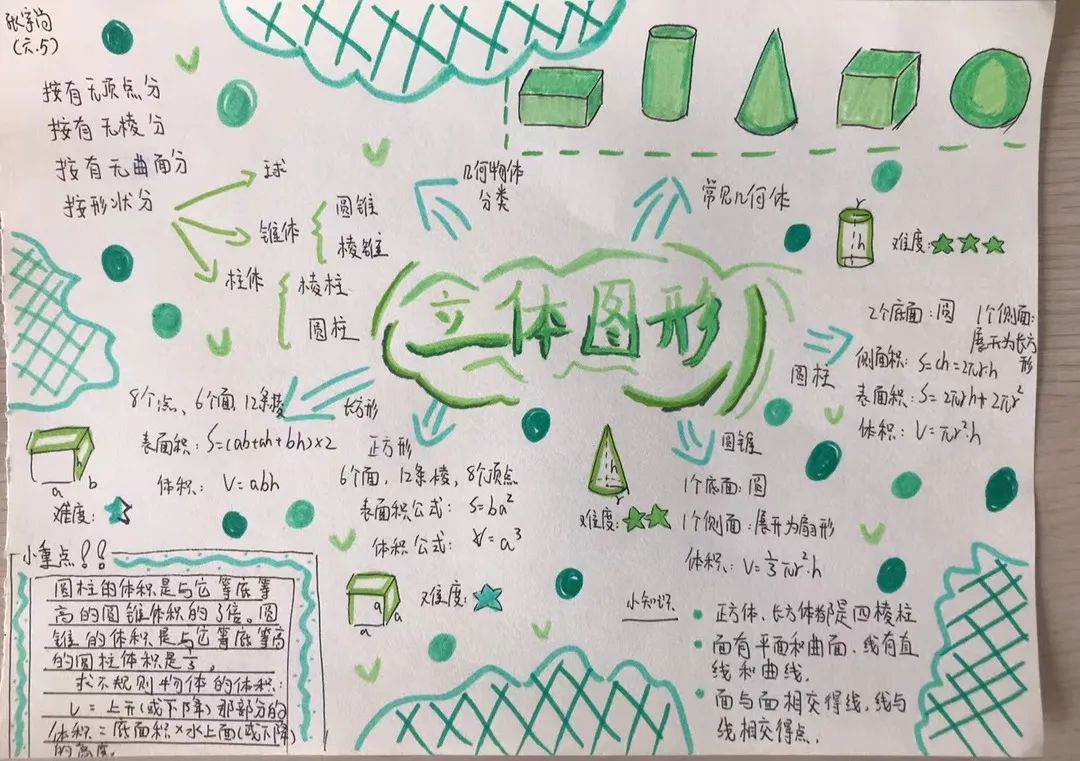 张宇尚
(六.5)
按有无顶点分
按有无棱分
按有无曲面分
按形状分
球
锥体
圆锥
棱锥
柱体
棱柱
圆柱
几何物体
分类
常见几何体
立体图形
r
h
难度:
圆柱
2个底面:圆
1个侧面:
展开为长方
形
侧面积: S=ch=2πr·h
表面积: S=2πrh+2πr²
体积: V=πr²·h
长方形
8个点、6个面,12条棱
表面积: S=(ab+ah+bh)×2
体积: V=abh
h
a
b
难度:
正方形
6个面,12条棱,8个顶点
表面积公式: S=6a²
体积公式: V=a³
a
a
a
难度:
圆锥
h
r
难度:
1个底面:圆
1个侧面:展开为扇形
体积: V=1/3πr²·h
小重点!!
圆柱的体积是与它等底等
高的圆锥体积的3倍。圆
锥的体积是与它等底等高
的圆柱体积是1/3。
求不规则物体的体积:
V=上升(或下降)那部分的
体积=底面积×水上面(或下降)
的高度.
小知识
正方体、长方体都是四棱柱
面有平面和曲面、线有直
线和曲线.
面与面相交得线,线与
线相交得点.